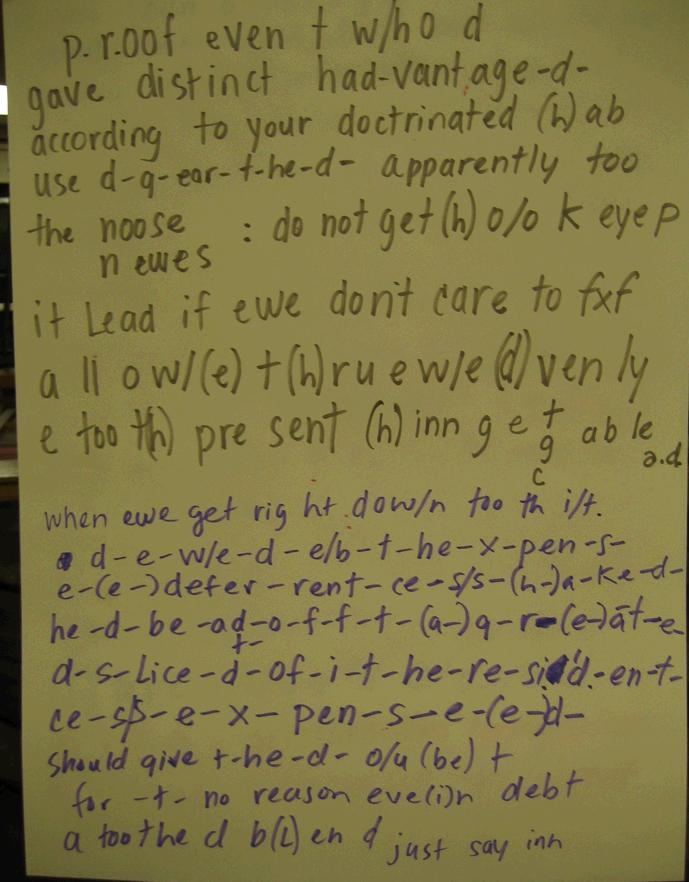 p.roof even t w/ho d
gave distinct had-vant.age-d-
according to your doctrinated (h)ab
use d-q-ear-t-he-d- apparently too
the noose : do not get (h)o/o k eye p
n ewes
it Lead if ewe don't care to fxf
a ll ow/(e) t(h)ru e w/e (d)ven ly
e too th) pre sent (h)inn g e t able
g a.d
c
when ewe get rig ht dow/n too th i/t.
d-e-w/e-d-e/b-t-he-x-pen-s-
e-(e-)defer-rent-ce-s/s-(h-)a-ke-d-
he-d-be-ad-o-f-f-t-(a-)q-r-(e-)āt-e
t-
d-s-Lice-d-of-i-t-he-re-si'd.-en-t-
ce-s/s-e-x-pen-s-e-(e-)d-
should give t-he-d- o/u (be) t
for -t- no reason eve(i)n debt
a too the d b(L) en d just say inn